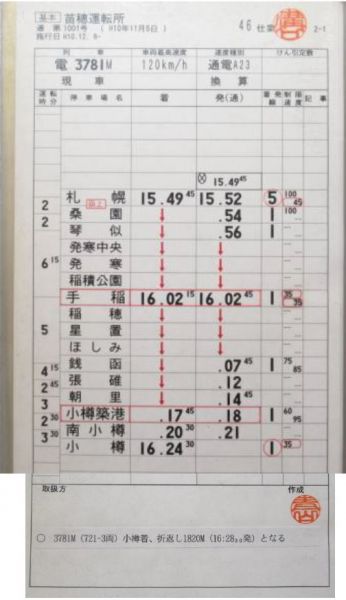 基本 苗穂運転所 46仕業 2-1
達 第1001号 (H10年11月5日)
施行日 H10.12.8-
列車 車両最高速度 速度種別 けん引定数
電 3781M 120km/h 通電A23
現車 換算
運転時分 停車場名 着 発(通) 着発線 制限速度 記事
⊗ 15.49⁴⁵
札幌 15.49⁴⁵ 15.52 5 100 45
2 桑園 ↓ .54 1 100
2 琴似 ↓ .56 1
発寒中央 ↓ ↓
6¹⁵ 発寒 ↓ ↓
稲積公園 ↓ ↓
手稲 16.02¹⁵ 16.02⁴⁵ 1 35 35
稲穂 ↓ ↓
5 星置 ↓ ↓
ほしみ ↓ ↓
4¹⁵ 銭函 ↓ .07⁴⁵ 1 75 85
2⁴⁵ 張碓 ↓ .12
3 朝里 ↓ .14⁴⁵
2³⁰ 小樽築港 .17⁴⁵ .18 1 60 95
3³⁰ 南小樽 .20³⁰ .21
小樽 16.24³⁰ 1 35
取扱方 作成
○ 3781M (721-3両) 小樽着、折返し1820M (16:28₃₀発) となる